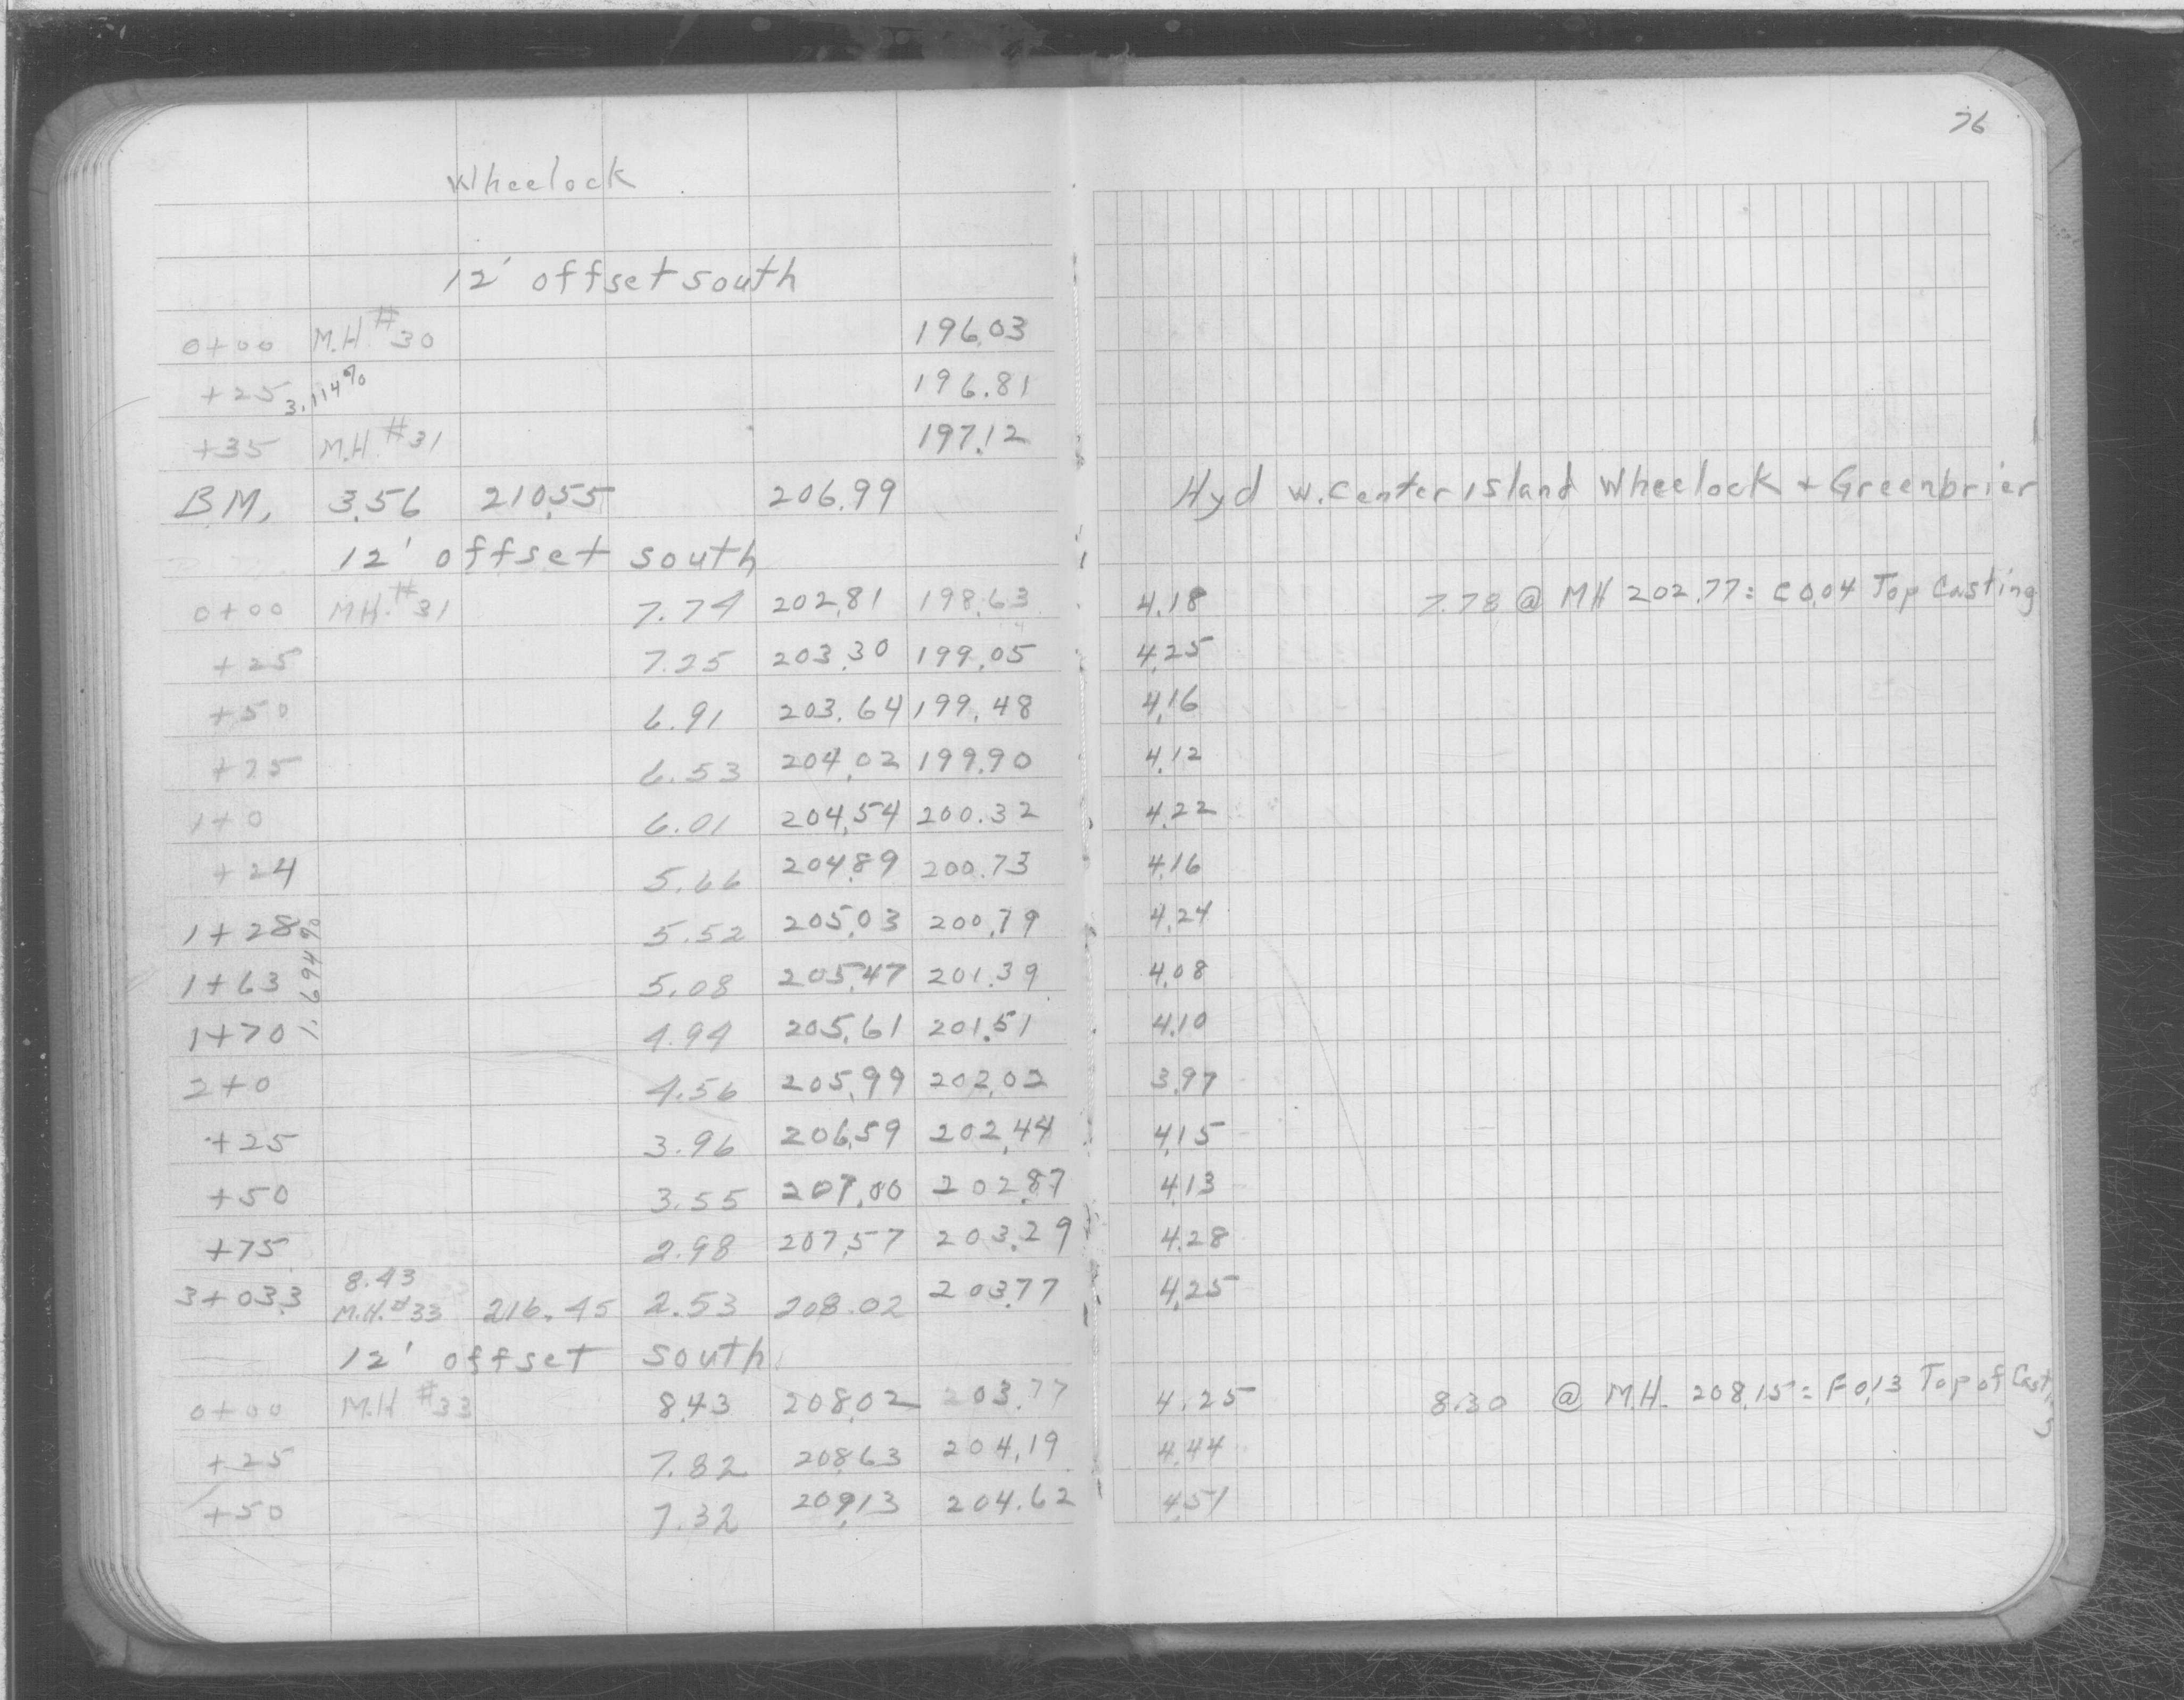 76
Wheelock
12' offset south
0+00 M.H. #30 196.03
+25 3.114% 196.81
+35 M.H. #31 197.12
B.M. 3.56 210.55 206.99 Hyd W. Center Island Wheelock + Greenbrier
12' offset south
0+00 MH. #31 7.74 202.81 198.63 4.18 7.78 @ MH 202.77 = C 0.04 Top Casting
+25 7.25 203.30 199.05 4.25
+50 6.91 203.64 199.48 4.16
+75 6.53 204.02 199.90 4.12
1+0 6.01 204.54 200.32 4.22
+24 5.66 204.89 200.73 4.16
1+28 5.52 205.03 200.79 4.24
1+63 1.694% 5.08 205.47 201.39 4.08
1+70 4.94 205.61 201.51 4.10
2+0 4.56 205.99 202.02 3.97
+25 3.96 206.59 202.44 4.15
+50 3.55 207.00 202.87 4.13
+75 2.98 207.57 203.29 4.28
8.43
3+03.3 M.H. #33 216.45 2.53 208.02 203.77 4.25
12' offset south
0+00 M.H #33 8.43 208.02 203.77 4.25 8.30 @ M.H. 208.15 = F 0.13 Top of Casting
+25 7.82 208.63 204.19 4.44
+50 7.32 209.13 204.62 4.51